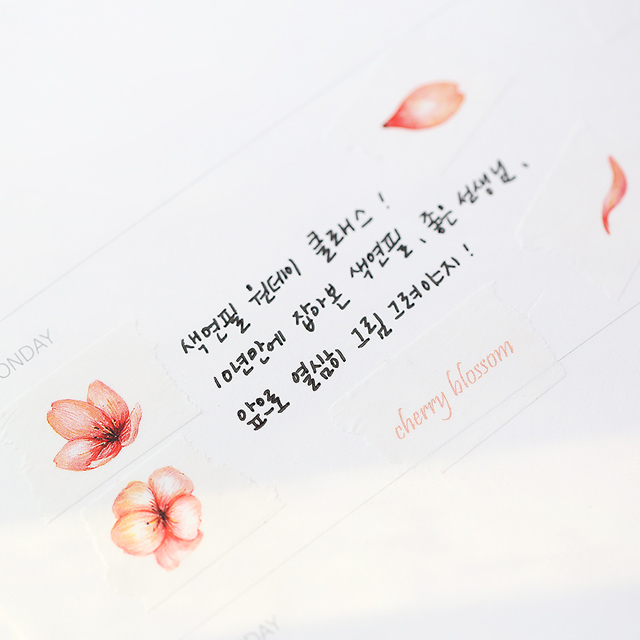 색연필 원데이 클래스!
10년만에 잡아본 색연필, 좋은 선생님,
앞으로 열심히 그림 그려야지!
cherry blossom
ONDAY
DAY